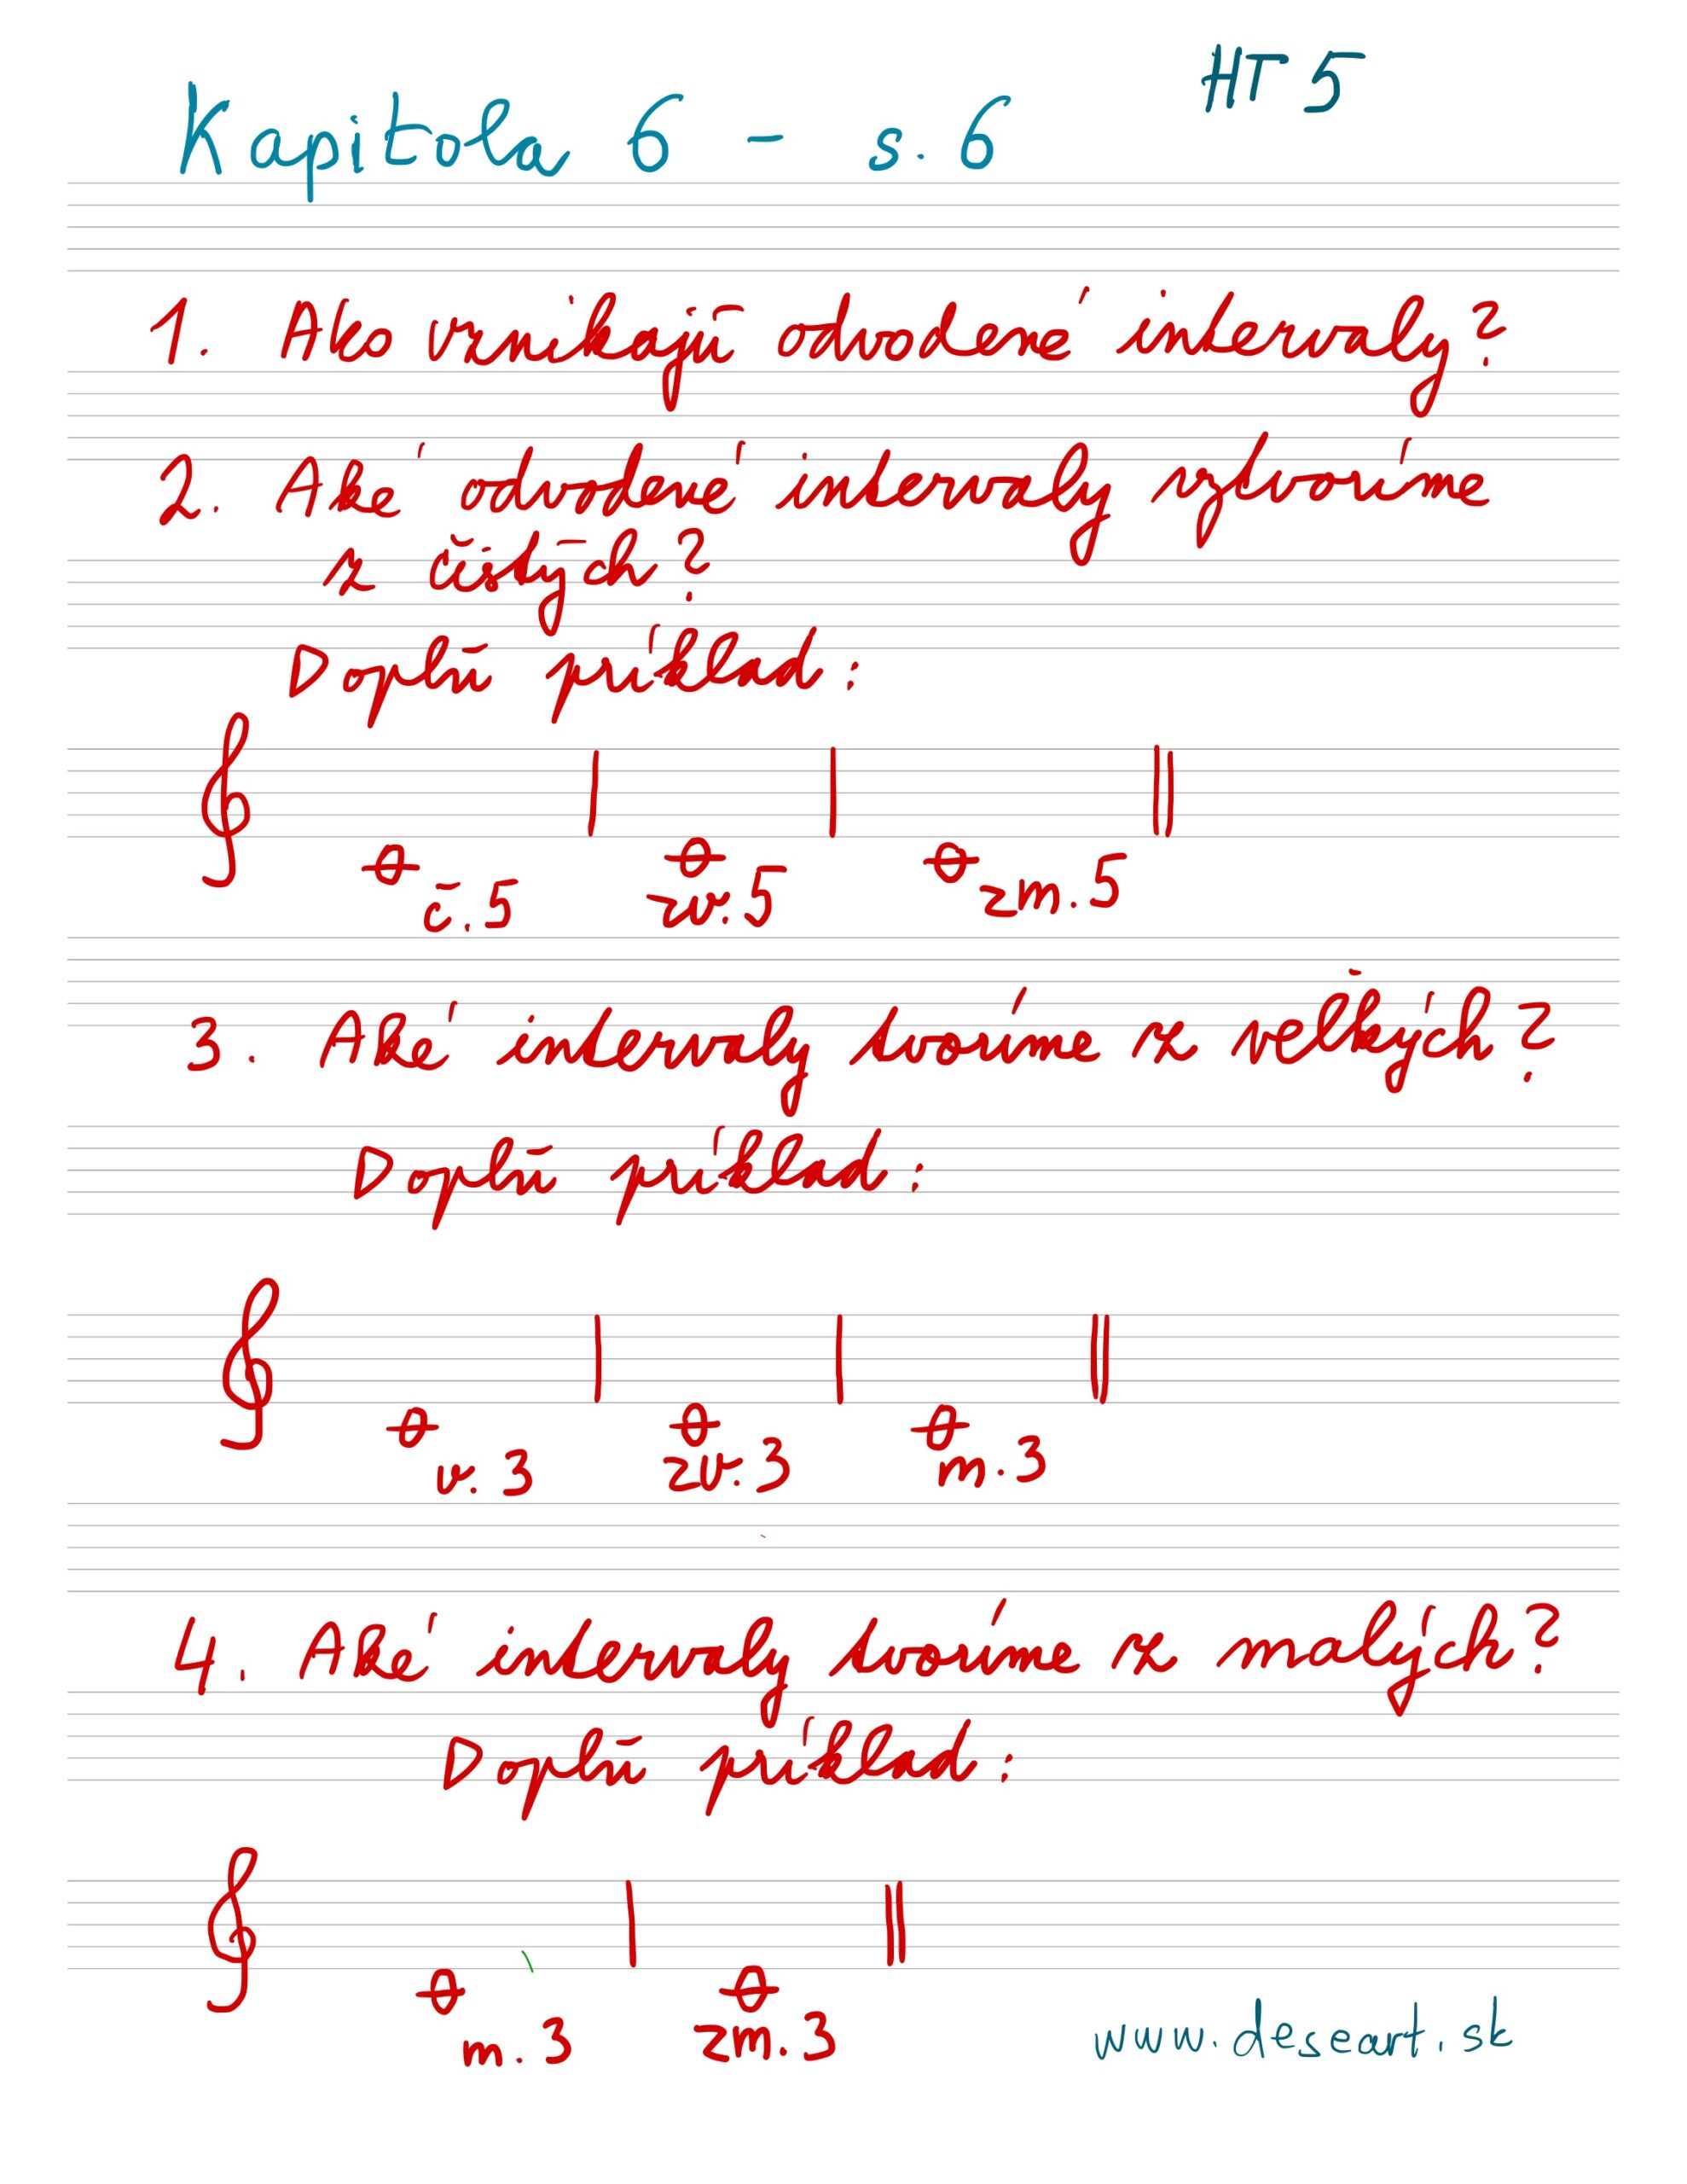 HT 5
Kapitola 6 - s. 6
1. Ako vznikajú odvodené intervaly?
2. Aké odvodené intervaly vytvoríme
z čistých?
Doplň príklad:
č. 5 zv. 5 zm. 5
3. Aké intervaly tvoríme z veľkých?
Doplň príklad:
v. 3 zv. 3 m. 3
4. Aké intervaly tvoríme z malých?
Doplň príklad:
m. 3 zm. 3
www.deseart.sk